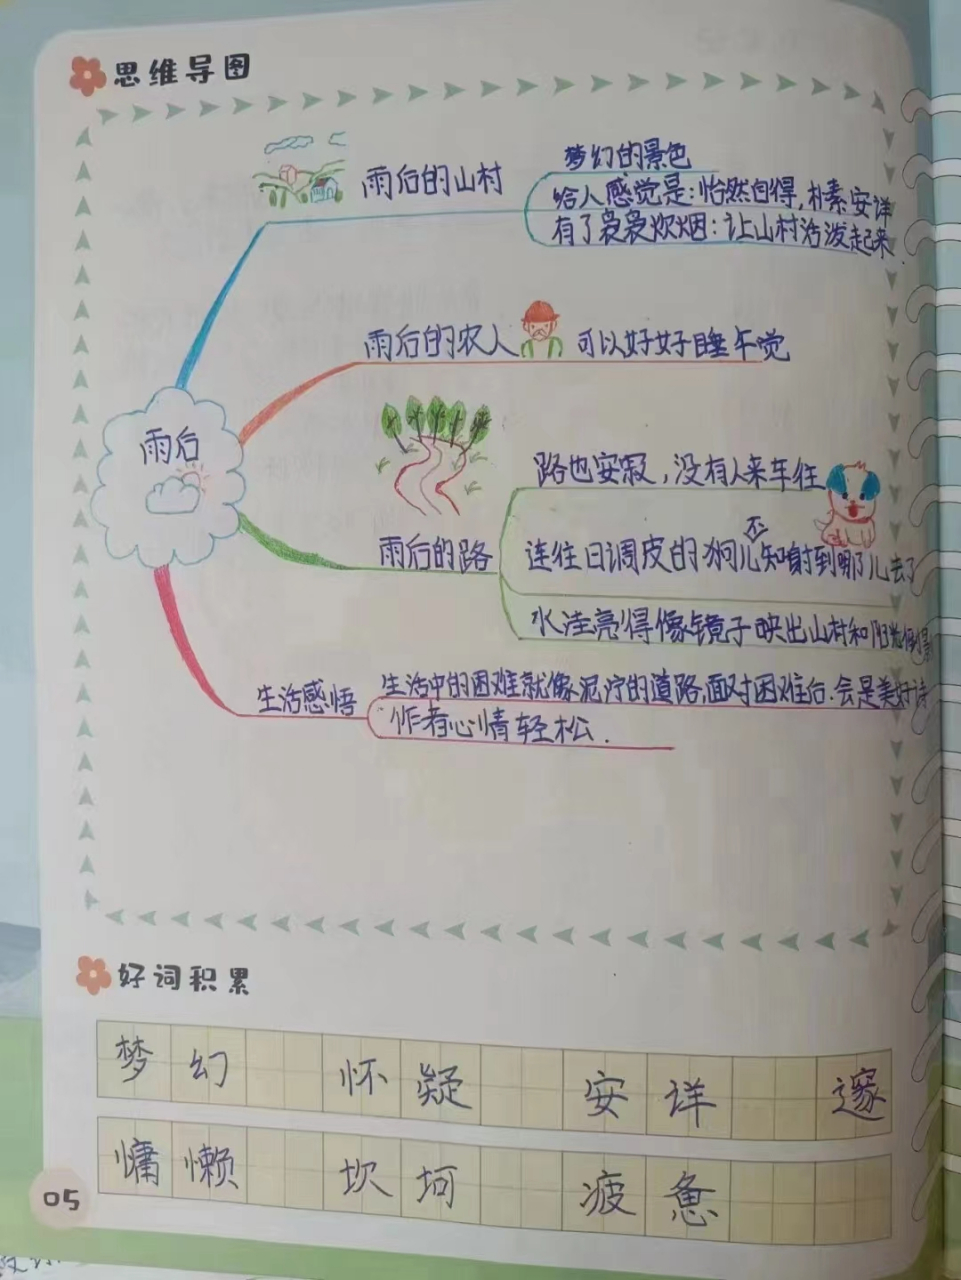 思维导图
雨后的山村
梦幻的景色
给人感觉是：怡然自得，朴素安详
有了袅袅炊烟：让山村活泼起来.
雨后的农人 可以好好睡午觉
雨后
路也安寂，没有人来车往
不
雨后的路
连往日调皮的狗儿知射到哪儿去了
水洼亮得像镜子映出山村和阳光
生活感悟
生活中的困难就像泥泞的道路,面对困难后.会是美好诗
作者心情轻松.
好词积累
梦幻 怀疑 安详 邃
慵懒 坎坷 疲惫
05